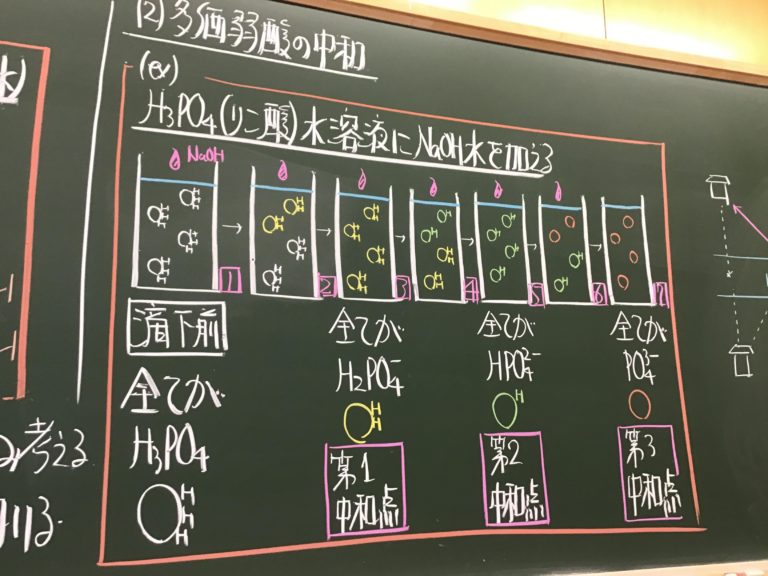 (2) 多価弱酸の中和
(ex)
H₃PO₄(リン酸)水溶液にNaOH水を加える
NaOH
1 2 3 4 5 6 7
滴下前
全てが
H₃PO₄
H H H
全てが
H₂PO₄⁻
H H
第1
中和点
全てが
HPO₄²⁻
H
第2
中和点
全てが
PO₄³⁻
第3
中和点
考える